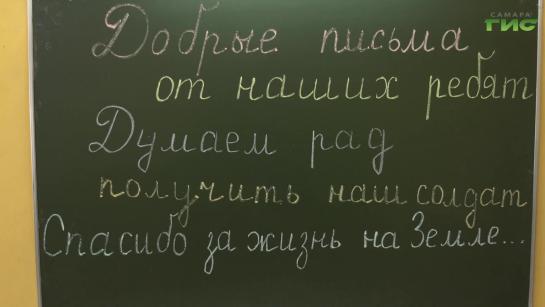 САМАРА
ГИС
Добрые письма
от наших ребят
Думаем рад
получить наш солдат
Спасибо за жизнь на Земле...